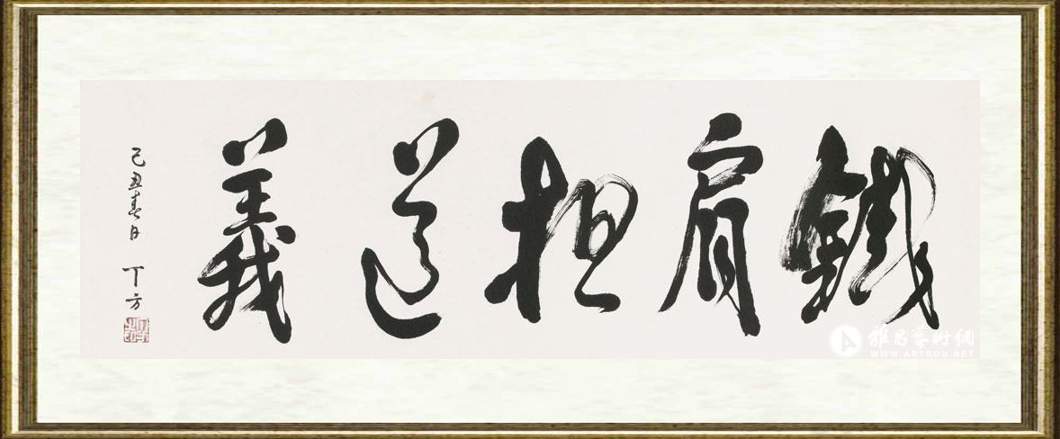 鐵肩担道義
己丑春日
丁方
雅昌艺术網
WWW.ARTRON.NET